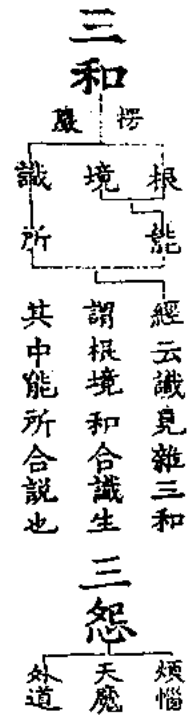 三和
楞嚴
根 境 識
能 所
經云識見雜三和
謂根境和合識生
其中能所合說也
三怨
煩惱
天魔
外道